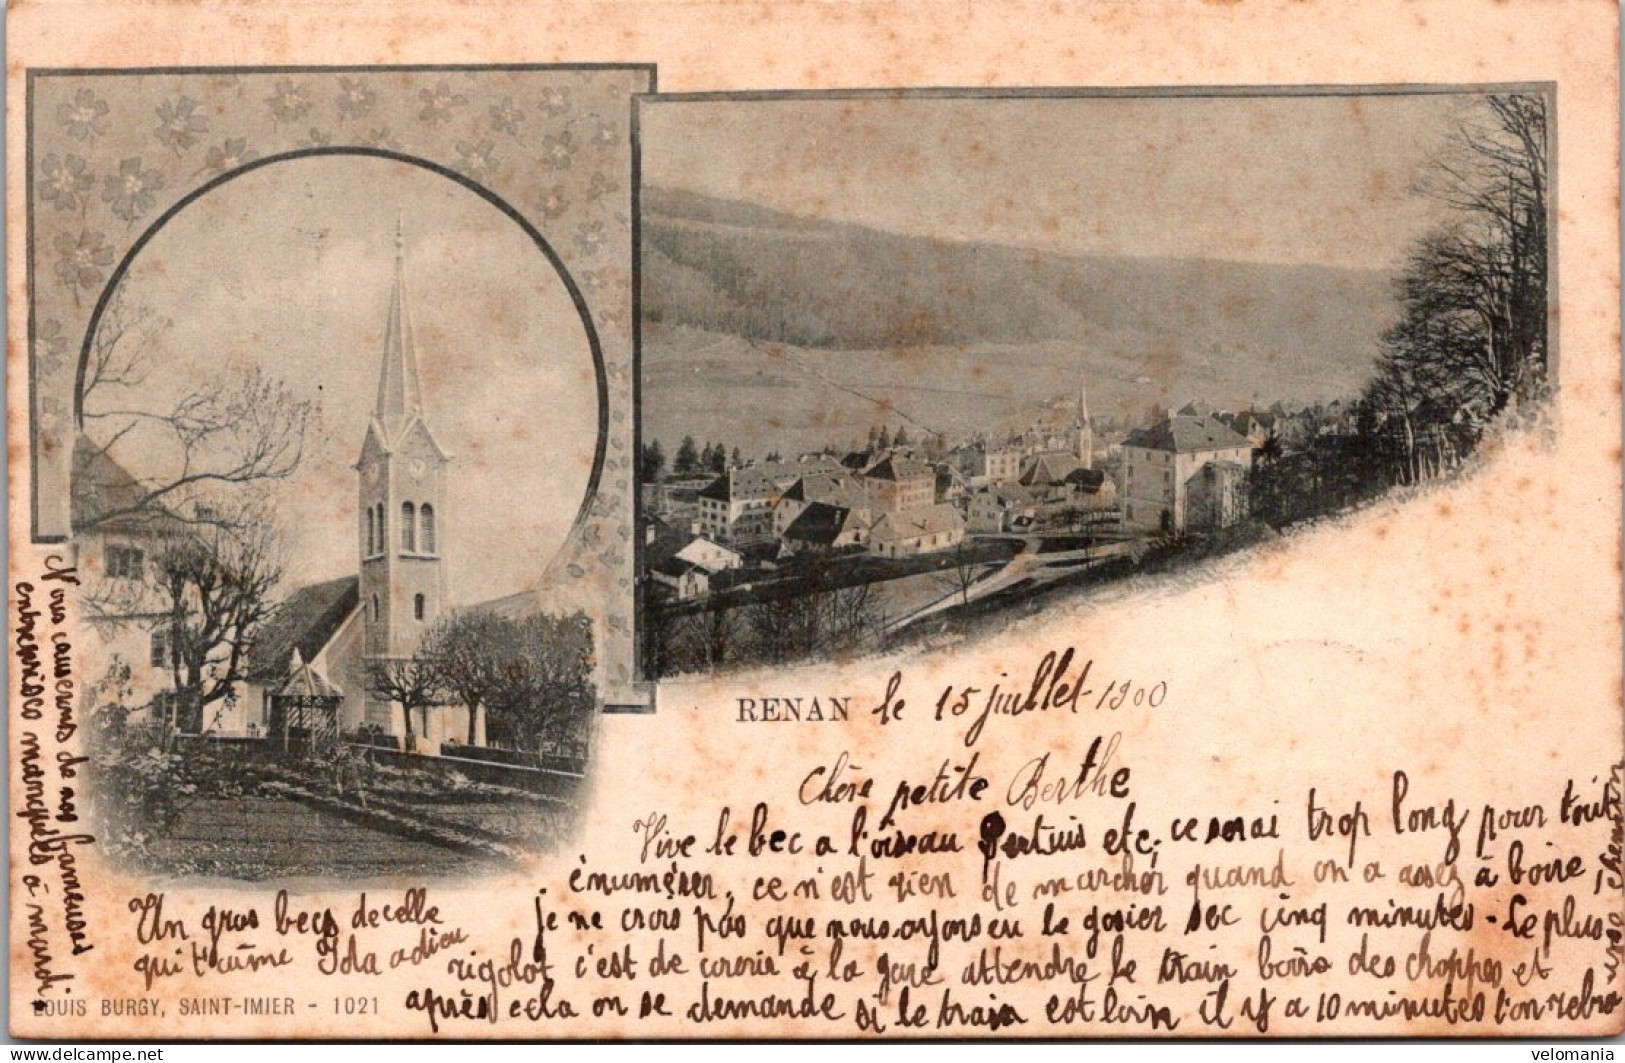 RENAN le 15 juillet 1900
Chère petite Berthe
Vive le bec a l'oiseau Pertuis etc, ce serai trop long pour tout
énumérer, ce n'est rien de marcher quand on a assez à boire,
je ne crois pas que nous ayons eu le gosier sec cinq minutes. Le plus
rigolot c'est de courir à la gare attendre le train boire des choppes et
après cela on se demande si le train est loin il y a 10 minutes l'on rebro
usse chemin
Un gros becs de celle
qui t'aime Ida adieu
Nous causerons de nos fameuses
entreprises manquées à mardi.
LOUIS BURGY, SAINT-IMIER - 1021
velomania